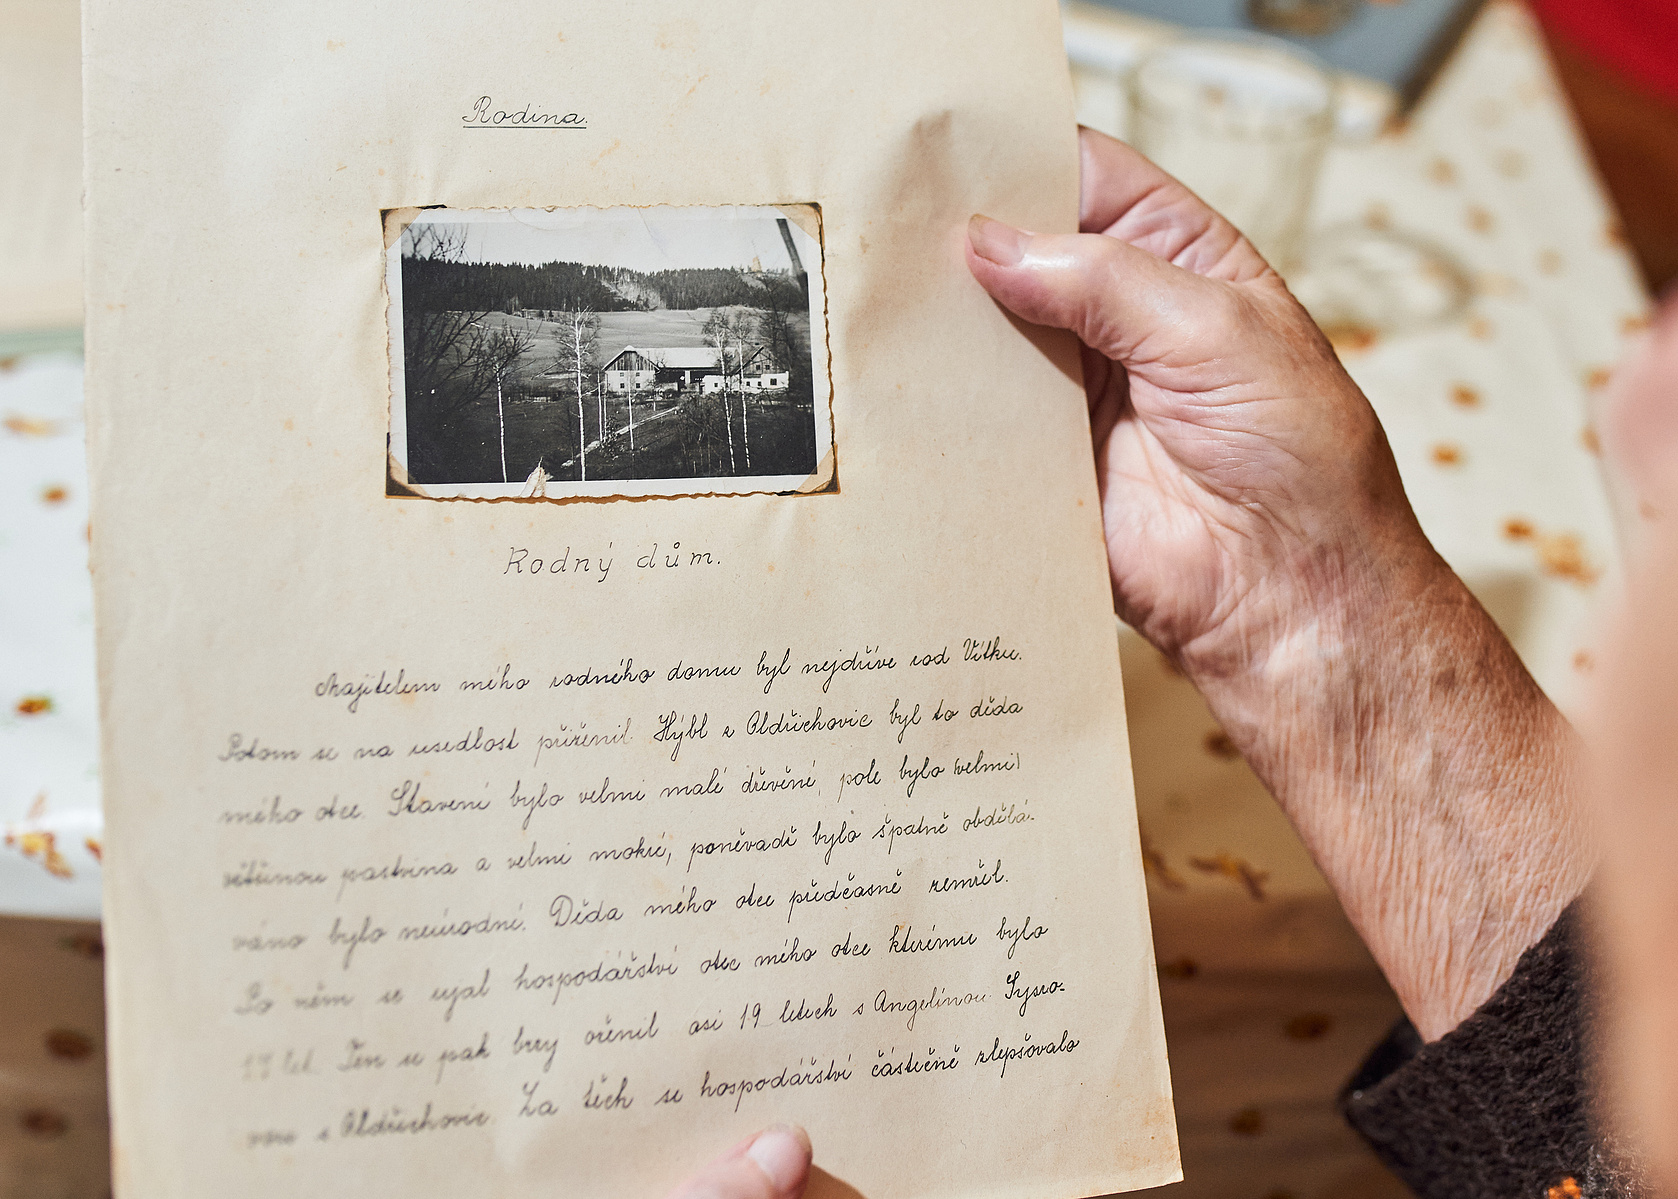 Rodina.
Rodný dům.
Majitelem mého rodného domu byl nejdříve rod Vítků.
Potom se na usedlost přiženil Hýbl z Oldřichovic byl to děda
mého otce. Stavení bylo velmi malé dřevěné, pole bylo (velmi)
většinou pastvina a velmi mokré, poněvadž bylo špatně obdělá-
váno bylo neúrodné. Děda mého otce předčasně zemřel.
Po něm se ujal hospodářství otec mého otce kterému bylo
17 let. Ten se pak brzy oženil asi 19 letech s Angelínou Syro-
vou z Oldřichovic. Za těch se hospodářství částečně zlepšovalo